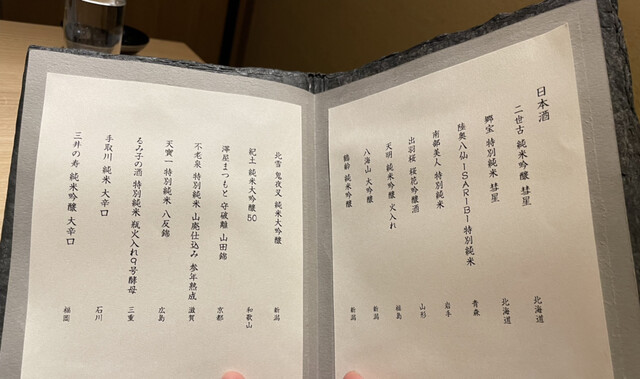 日本酒
二世古 純米吟醸 彗星 北海道
郷宝 特別純米 彗星 北海道
陸奥八仙 ISARIBI 特別純米 青森
南部美人 特別純米 岩手
出羽桜 桜花吟醸酒 山形
天明 純米吟醸 火入れ 福島
八海山 大吟醸 新潟
鶴齢 純米吟醸 新潟
北雪 鬼夜叉 純米大吟醸 新潟
紀土 純米大吟醸 50 和歌山
澤屋まつもと 守破離 山田錦 京都
不老泉 特別純米 山廃仕込み 参年熟成 滋賀
天寶一 特別純米 八反錦 広島
るみ子の酒 特別純米 瓶火入れ9号酵母 三重
手取川 純米 大辛口 石川
三井の寿 純米吟醸 大辛口 福岡